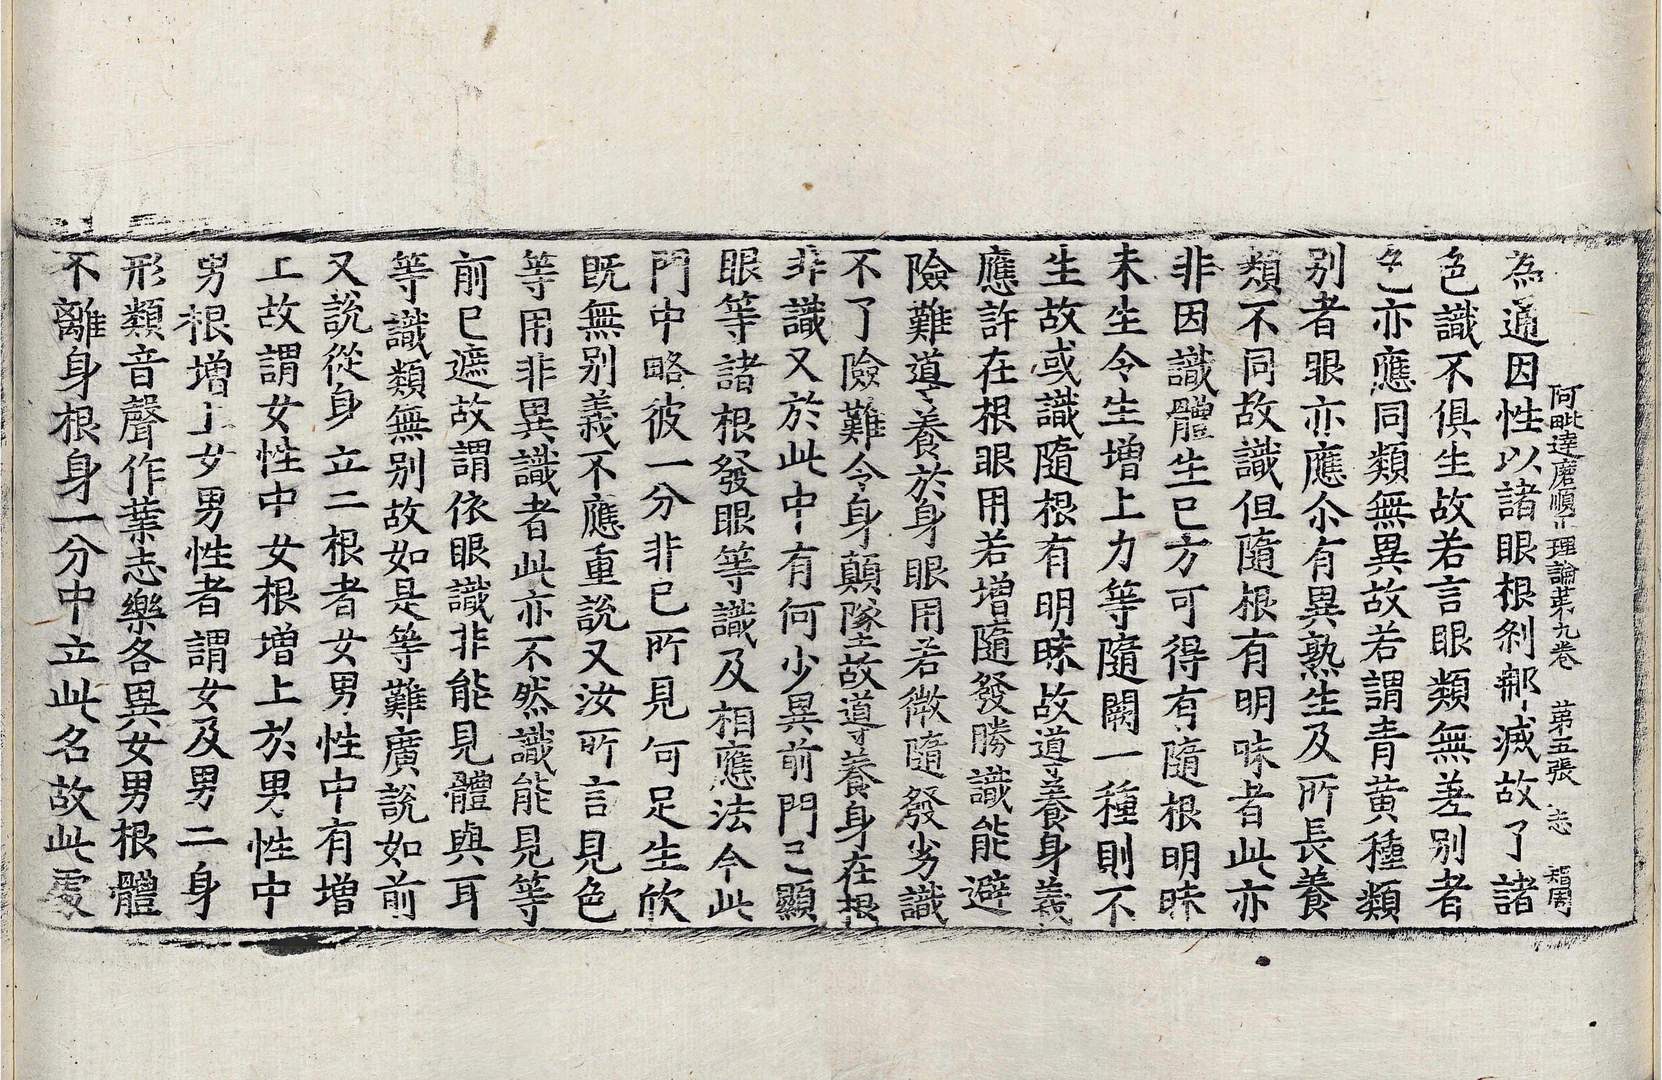 阿毗達磨順正理論第九卷　第五張　志　智周
為通因性以諸眼根剎那滅故了諸
色識不俱生故若言眼類無差別者
色亦應同類無異故若謂青黃種類
別者眼亦應尒有異熟生及所長養
類不同故識但隨根有明昧者此亦
非因識體生已方可得有隨根明昧
未生令生增上力等隨闕一種則不
生故或識隨根有明昧故道養身義
應許在根眼用若增隨發勝識能避
險難道養於身眼用若微隨發劣識
不了險難令身顛墜故導養身在根
非識又於此中有何少異前門已顯
眼等諸根發眼等識及相應法今此
門中略彼一分非已所見何足生欣
既無別義不應重說又汝所言見色
等用非異識者此亦不然識能見等
前已遮故謂依眼識非能見體與耳
等識類無別故如是等難廣說如前
又說從身立二根者女男性中有增
上故謂女性中女根增上於男性中
男根增上女男性者謂女及男二身
形類音聲作業志樂各異女男根體
不離身根身一分中立此名故此處